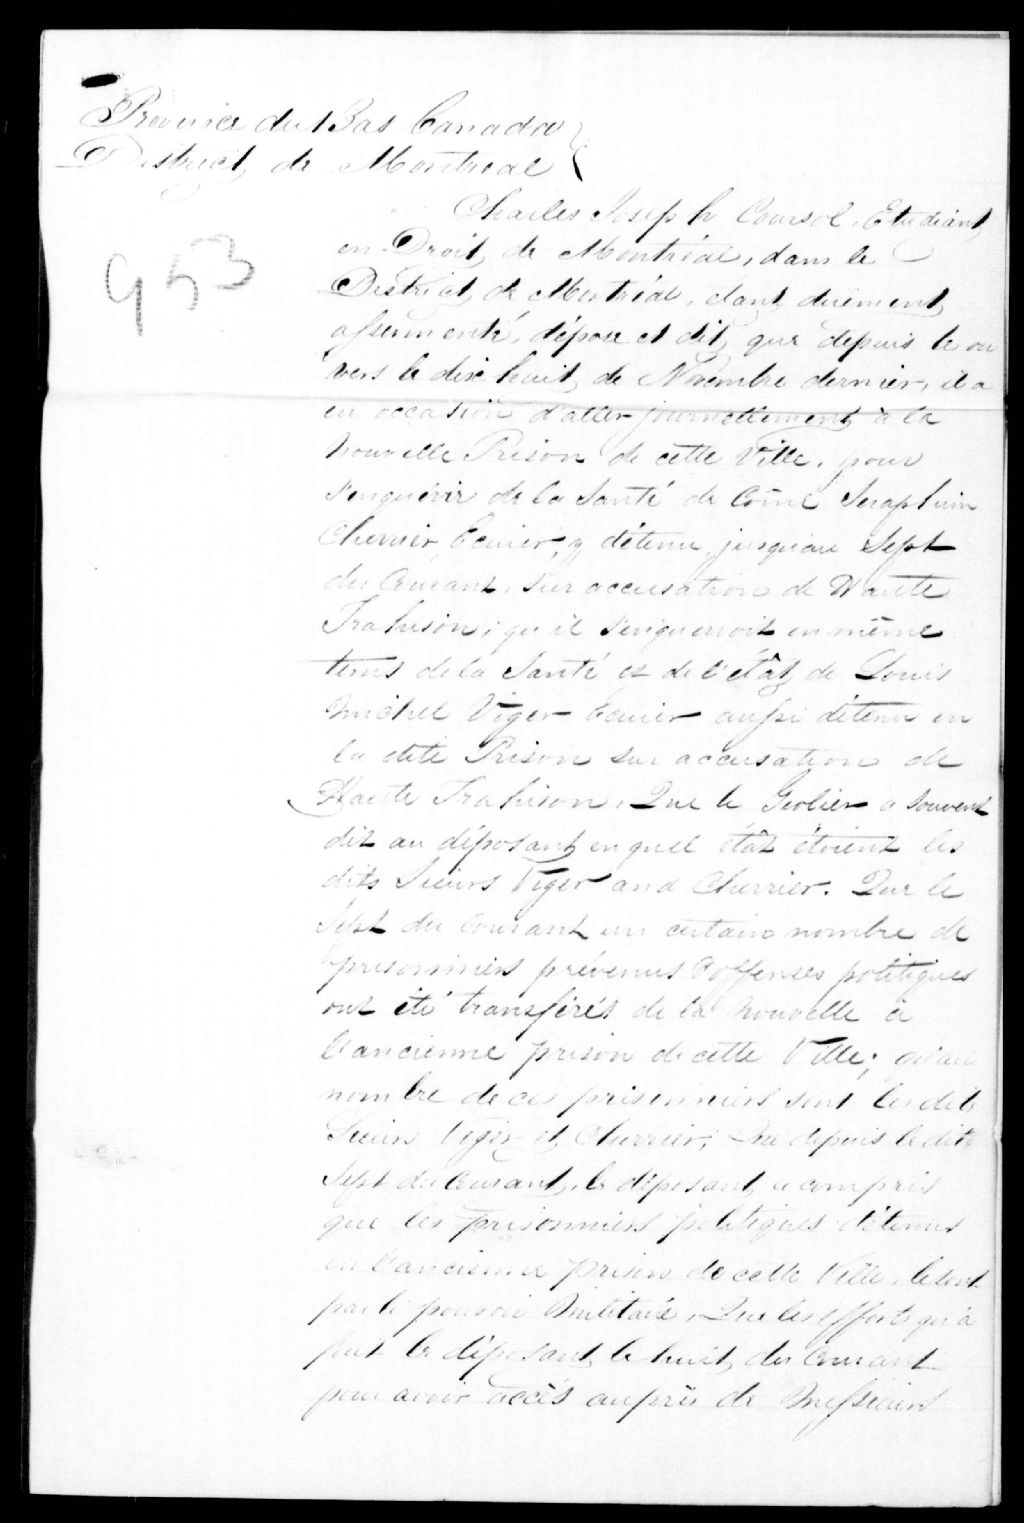 Province du Bas Canada
District de Montreal
953
Charles Joseph Coursol, Etudiant
en Droit, de Montréal, dans le
District de Montréal, etant duement
assermenté, dépose et dit, que depuis le ou
vers le dix huit de Novembre dernier, il a
eu occasion d'aller journellement à la
Nouvelle Prison de cette Ville, pour
s'enquérir de la Santé de Côme Seraphim
Cherrier, Ecuier, y détenu, jusqu'au Sept
du Courant, sur accusation de Haute
Trahison; qu'il s'enqueroit en même
tems de la Santé et de l'étât de Louis
Michel Viger Ecuier aussi détenu en
la dite Prison sur accusation de
Haute Trahison. Que le Geolier a souvent
dit au déposant en quel étât étoient les
dits Sieurs Viger and Cherrier. Que le
Sept du Courant un certain nombre de
prisonniers prévenus d'offenses politiques
ont été transférés de la Nouvelle à
l'ancienne prison de cette Ville; qu'au
nombre de ces prisonniers sont les dits
Sieurs Viger et Cherrier; Que depuis le dit
Sept du Courant, le déposant a compris
que les prisonniers politiques détenus
en l'ancienne prison de cette Ville, le sont
par le pouvoir Militaire. Que les efforts qu'a
fait le déposant, le huit du Courant
pour avoir accès auprès de Messieurs